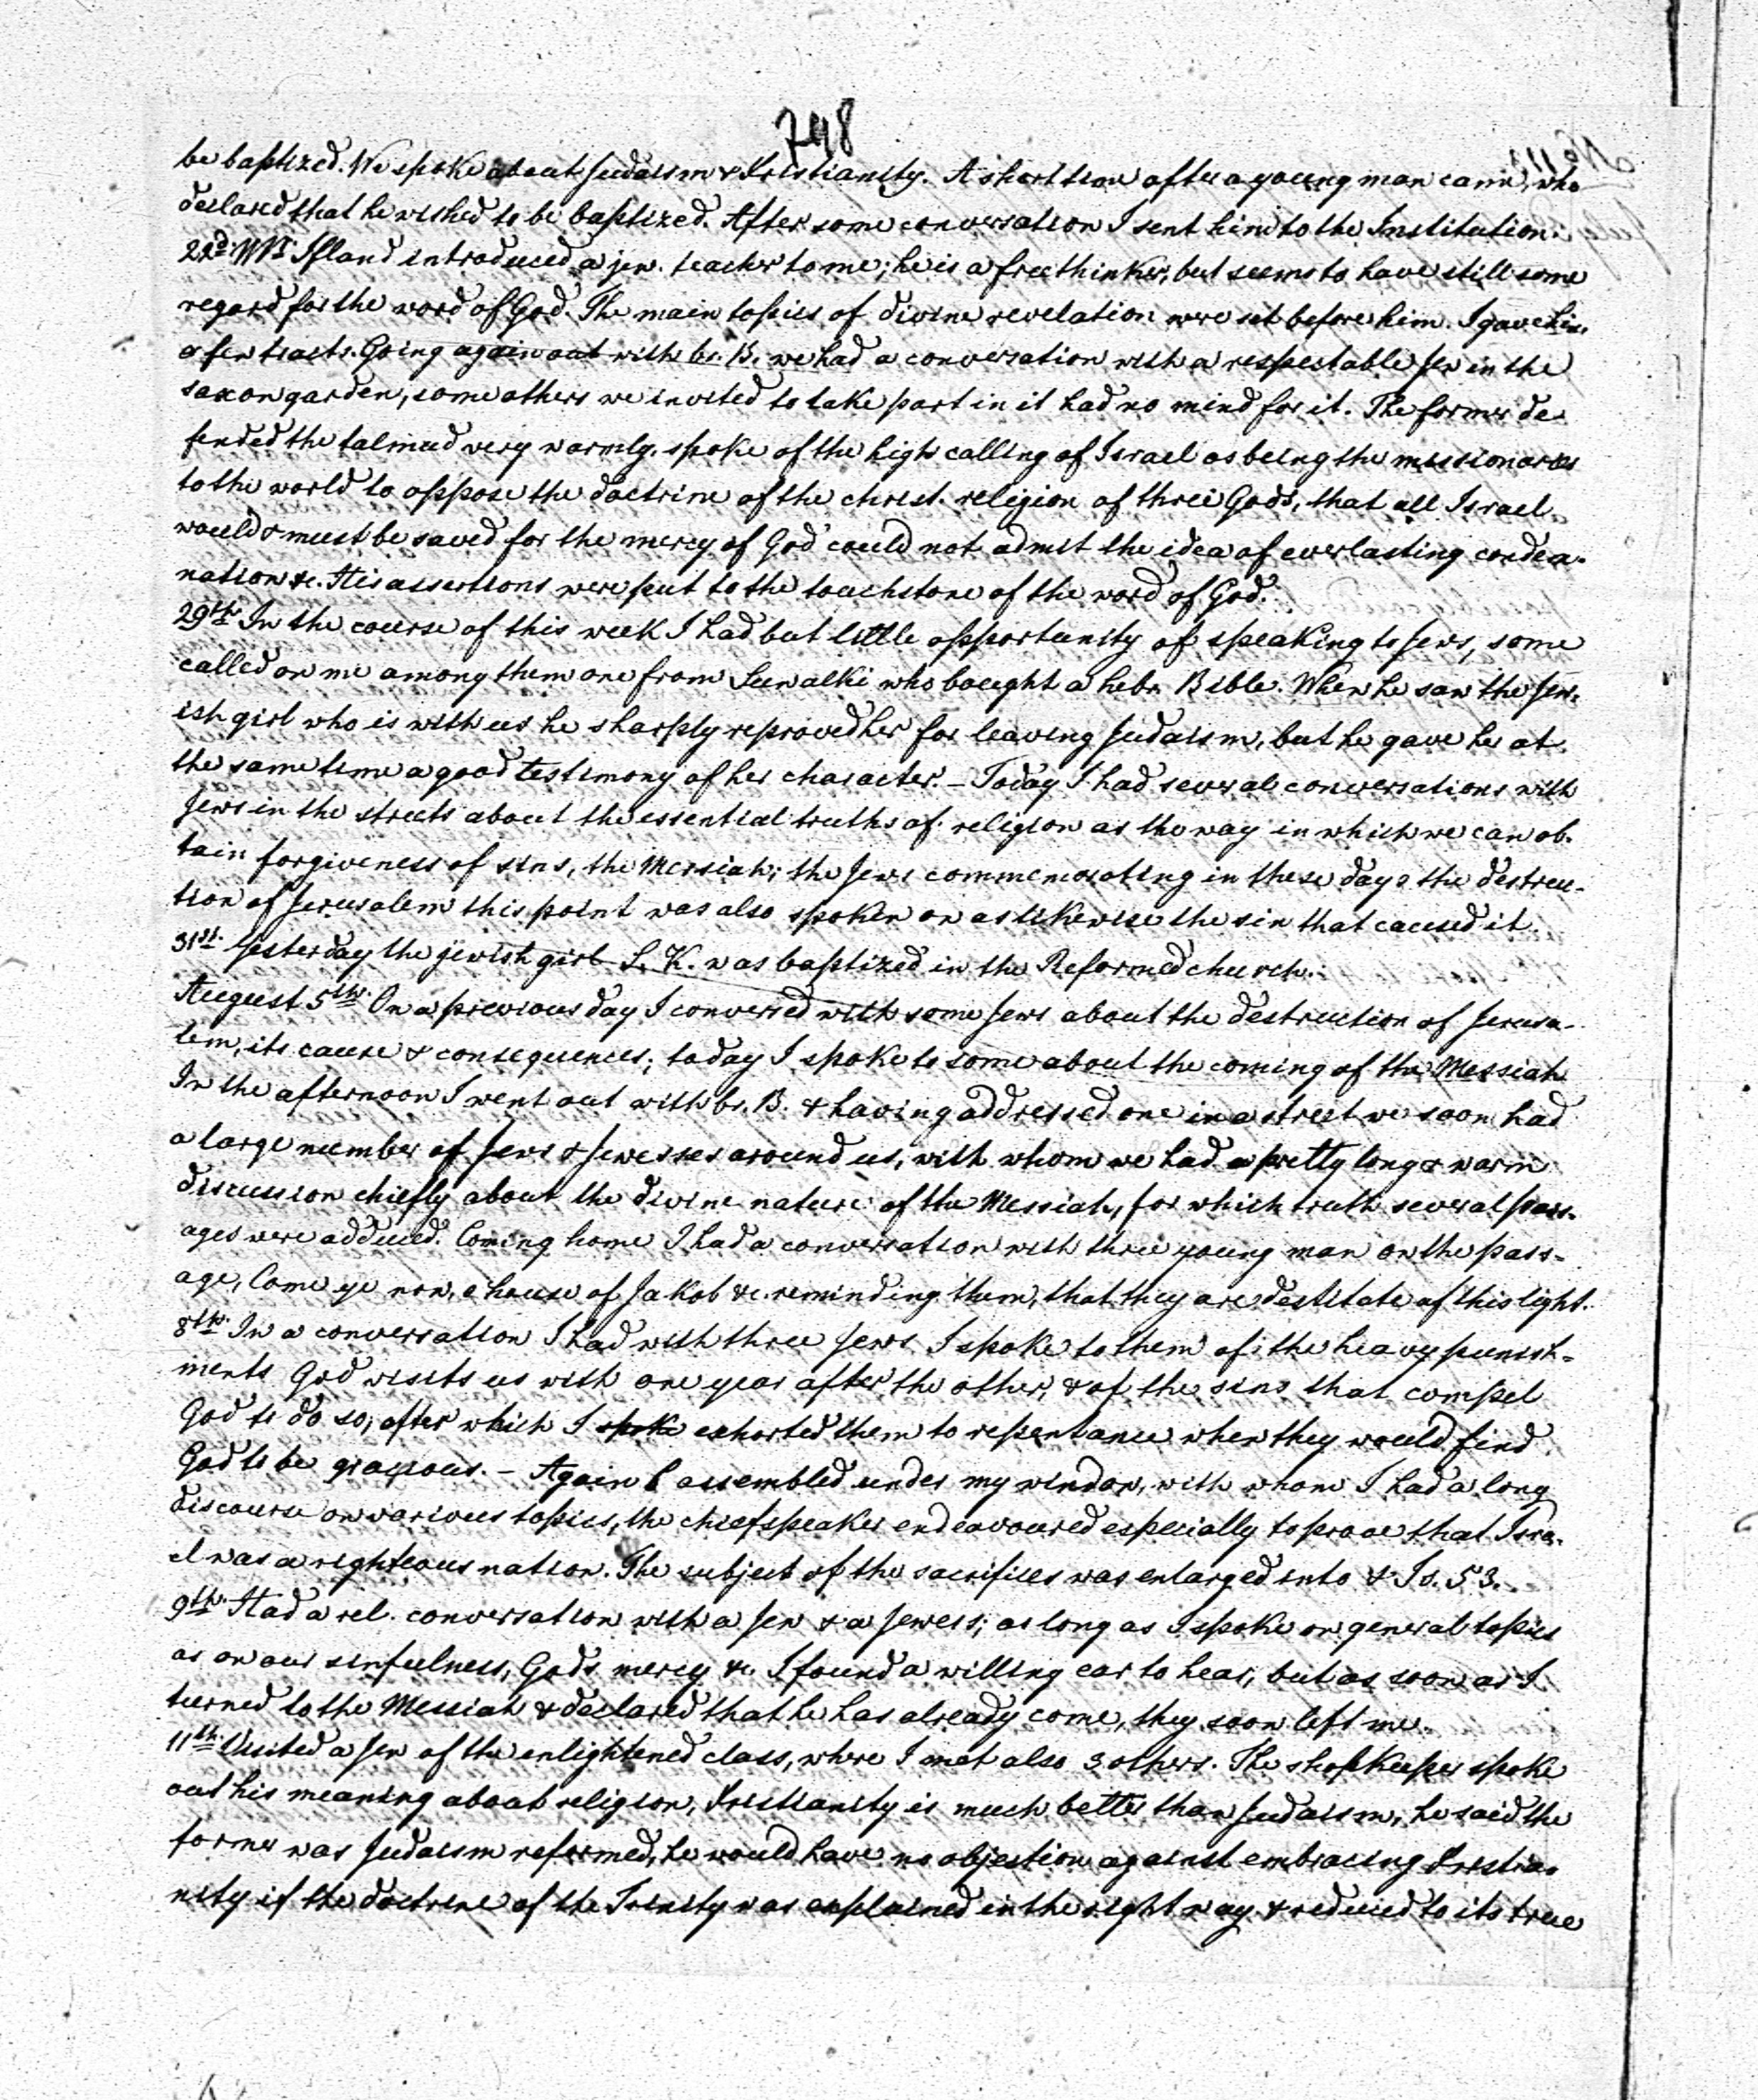 748
be baptized. We spoke about Judaism & Xristianity. A short time after a young man came, who
declared that he wished to be baptized. After some conversation I sent him to the Institution.
22d. Mr. Ifland introduced a jew. teacher to me; he is a freethinker, but seems to have still some
regard for the word of God. The main topics of divine revelation were set before him. I gave him
a few tracts. Going again out with br. B. we had a conversation with a respectable Jew in the
saxon garden, some others we invited to take part in it had no mind for it. The former de
fended the talmud very warmly, spoke of the high calling of Israel as being the missionaries
to the world to oppose the doctrine of the christ. religion of three Gods, that all Israel
would & must be saved for the mercy of God could not admit the idea of everlasting condem-
nation &c. His assertions were put to the touchstone of the word of God.
29th. In the course of this week I had but little opportunity of speaking to Jews, some
called on me among them one from Suwalki who bought a hebr. Bible. When he saw the Jew-
ish girl who is with us he sharply reproved her for leaving Judaism, but he gave her at
the same time a good testimony of her character. – Today I had several conversations with
Jews in the streets about the essential truths of religion as the way in which we can ob-
tain forgiveness of sins, the Messiah; the Jews commemorating in these days the destruc-
tion of Jerusalem this point was also spoken on as likewise the sin that caused it.
31st. Yesterday the jewish girl S. K. was baptized in the Reformed church.
August 5th. On a previous day I conversed with some Jews about the destruction of Jerusa-
lem, its cause & consequences; today I spoke to some about the coming of the Messiah
In the afternoon I went out with br. B. & having addressed one in a street we soon had
a large number of Jews & Jewesses around us, with whom we had a pretty long & warm
discussion chiefly about the divine nature of the Messiah, for which truth several pass-
ages were adduced. Coming home I had a conversation with three young man on the pass-
age, Come ye now, o house of Jakob &c. reminding them, that they are destitate of this light.
8th. In a conversation I had with three Jews I spoke to them of the heavy punish-
ments God visits us with one year after the other, & of the sins that compel
God to do so; after which I spoke exhorted them to repentance when they would find
God to be gracious. – Again 6 assembled under my window, with whom I had a long
discourse on various topics, the chief speaker endeavoured especially to prove that Isra-
el was a righteous nation. The subject of the sacrifices was enlarged into & Is. 53.
9th. Had a rel. conversation with a Jew & a Jewess; as long as I spoke on general topics
as on our sinfulness, Gods mercy &c. I found a willing ear to hear, but as soon as I
turned to the Messiah & declared that he has already come, they soon left me.
11th. Visited a Jew of the enlightened class, where I met also 3 others. The shopkeeper spoke
out his meaning about religion, Xristianity is much better than Judaism, he said the
former was Judaism reformed, he would have no objection against embracing Xristia-
nity if the doctrine of the Trinity was explained in the right way & reduced to its true